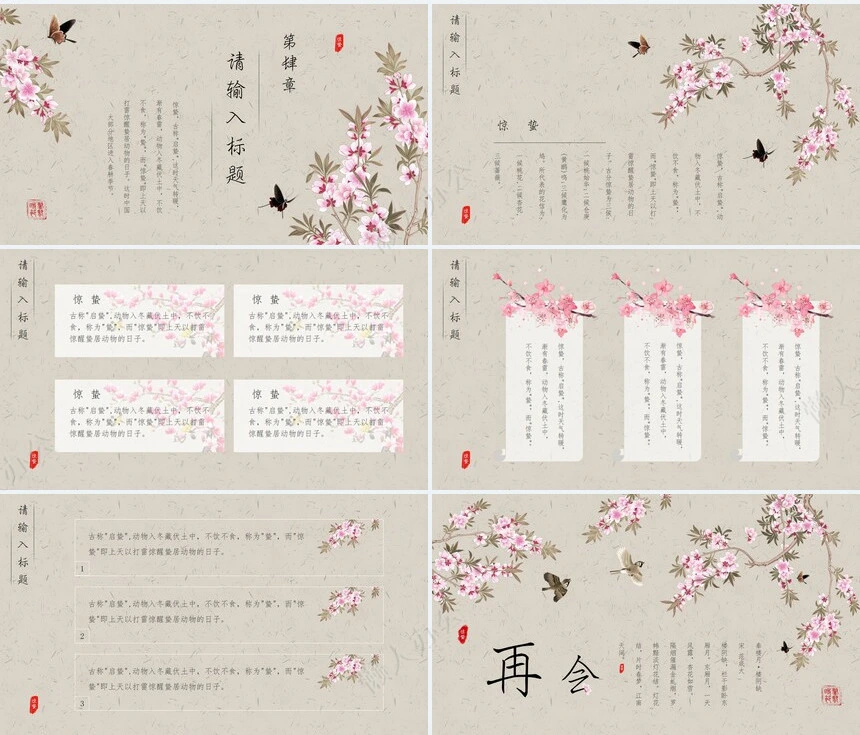 第肆章
请输入标题
惊蛰，古称“启蛰，这时天气转暖，
渐有春雷，动物入冬藏伏土中，不饮
不食，称为“蛰”，而“惊蛰”即上天以
打雷惊醒蛰居动物的日子。这时中国
大部分地区进入春耕季节。
惊蛰
请输入标题
惊 蛰
惊蛰，古称“启蛰”，动
物入冬藏伏土中，不
饮不食，称为“蛰”，
而“惊蛰”即上天以打
雷惊醒蛰居动物的日
子。古分惊蛰为三候：
一候桃始华；二候仓庚
(黄鹂)鸣；三候鹰化为
鸠。所代表的花信为：
一候桃花、二候杏花、
三候蔷薇。
惊蛰
请输入标题
惊 蛰
古称“启蛰”，动物入冬藏伏土中，不饮不
食，称为“蛰”，而“惊蛰”即上天以打雷
惊醒蛰居动物的日子。
惊 蛰
古称“启蛰”，动物入冬藏伏土中，不饮不
食，称为“蛰”，而“惊蛰”即上天以打雷
惊醒蛰居动物的日子。
惊 蛰
古称“启蛰”，动物入冬藏伏土中，不饮不
食，称为“蛰”，而“惊蛰”即上天以打雷
惊醒蛰居动物的日子。
惊 蛰
古称“启蛰”，动物入冬藏伏土中，不饮不
食，称为“蛰”，而“惊蛰”即上天以打雷
惊醒蛰居动物的日子。
惊蛰
请输入标题
惊蛰，古称“启蛰”，这时天气转暖，
渐有春雷，动物入冬藏伏土中，
不饮不食，称为“蛰”，而“惊蛰”
惊蛰，古称“启蛰”，这时天气转暖，
渐有春雷，动物入冬藏伏土中，
不饮不食，称为“蛰”，而“惊蛰”
惊蛰，古称“启蛰”，这时天气转暖，
渐有春雷，动物入冬藏伏土中，
不饮不食，称为“蛰”，而“惊蛰”
惊蛰
请输入标题
古称“启蛰”，动物入冬藏伏土中，不饮不食，称为“蛰”，而“惊
蛰”即上天以打雷惊醒蛰居动物的日子。
1
古称“启蛰”，动物入冬藏伏土中，不饮不食，称为“蛰”，而“惊
蛰”即上天以打雷惊醒蛰居动物的日子。
2
古称“启蛰”，动物入冬藏伏土中，不饮不食，称为“蛰”，而“惊
蛰”即上天以打雷惊醒蛰居动物的日子。
3
惊蛰
惊蛰
再会
秦楼月·楼阴缺
宋 范成大
楼阴缺。栏干影卧东
厢月。东厢月。一天
风露，杏花如雪。
隔烟催漏金虬咽。罗
帏黯淡灯花结。灯花
结。片时春梦，江南
天阔。